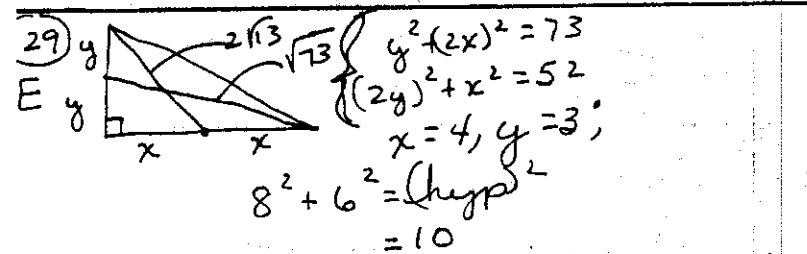 29
E
y
y
x
x
2√13
√73
y² + (2x)² = 73
(2y)² + x² = 52
x = 4, y = 3;
8² + 6² = (hyp)²
= 10